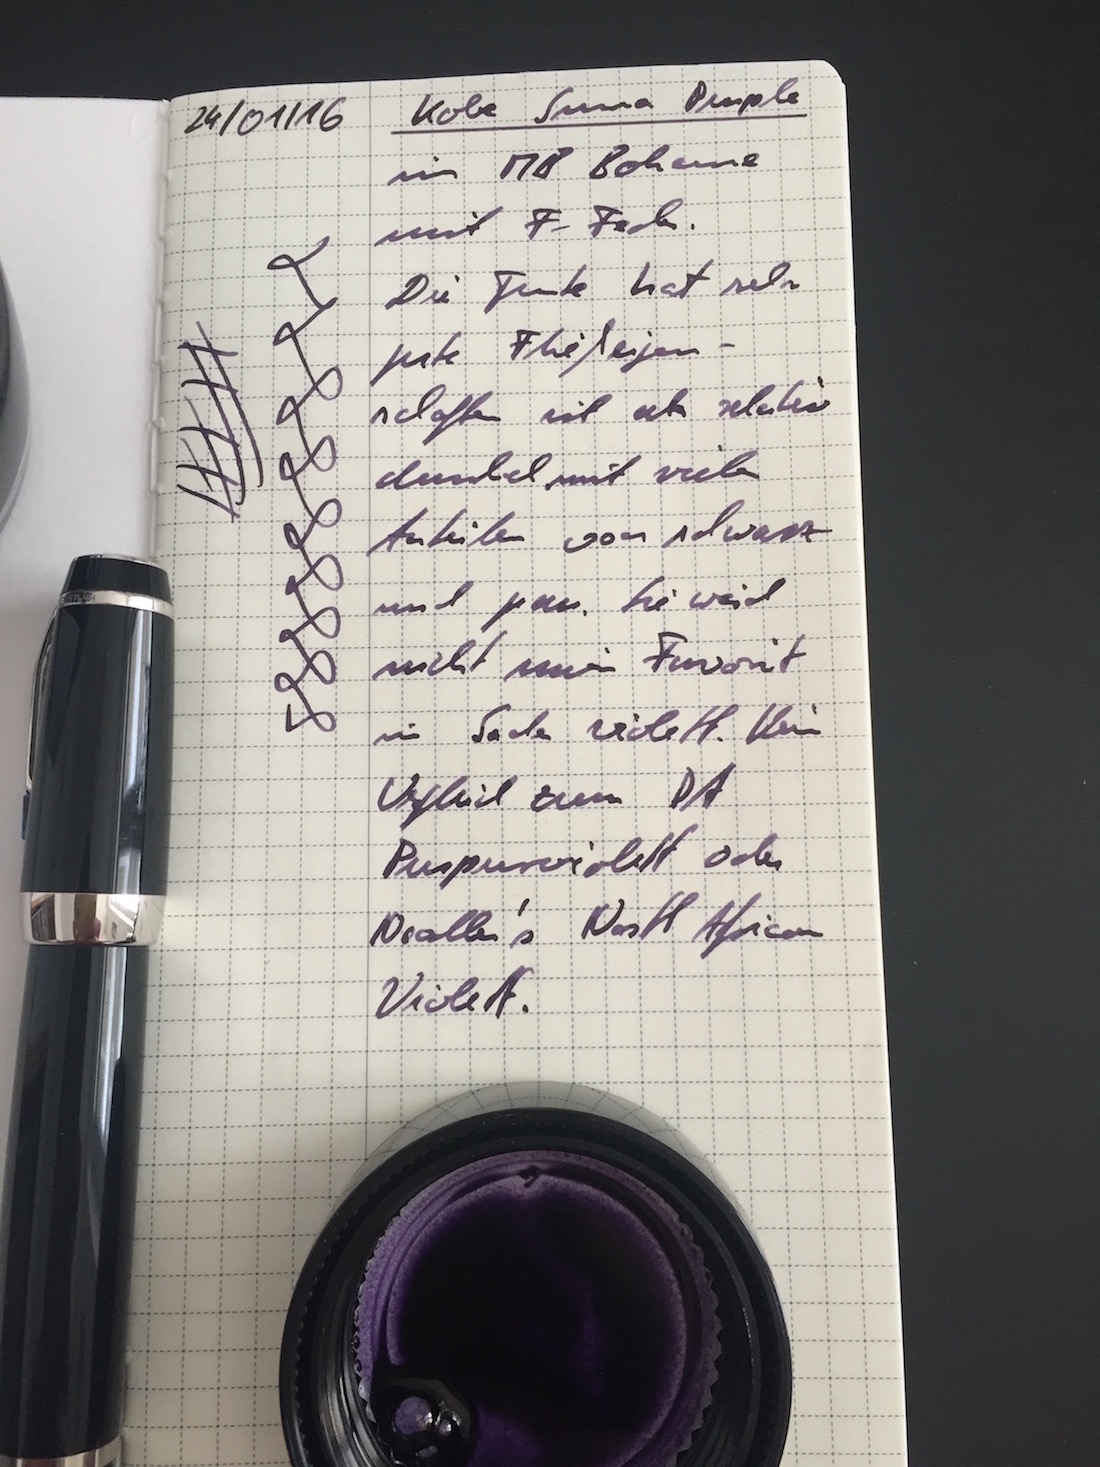 24/01/16 Kobe Suma Purple
in MB Boheme
mit F-Feder.
Die Tinte hat sehr
gute Fließeigen-
schaften ist aber relativ
dunkel mit vielen
Anteilen von schwarz
und grau. Sie wird
nicht mein Favorit
in Sachen violett. Kein
Vergleich zum DA
Purpurviolett oder
North African
Violett.